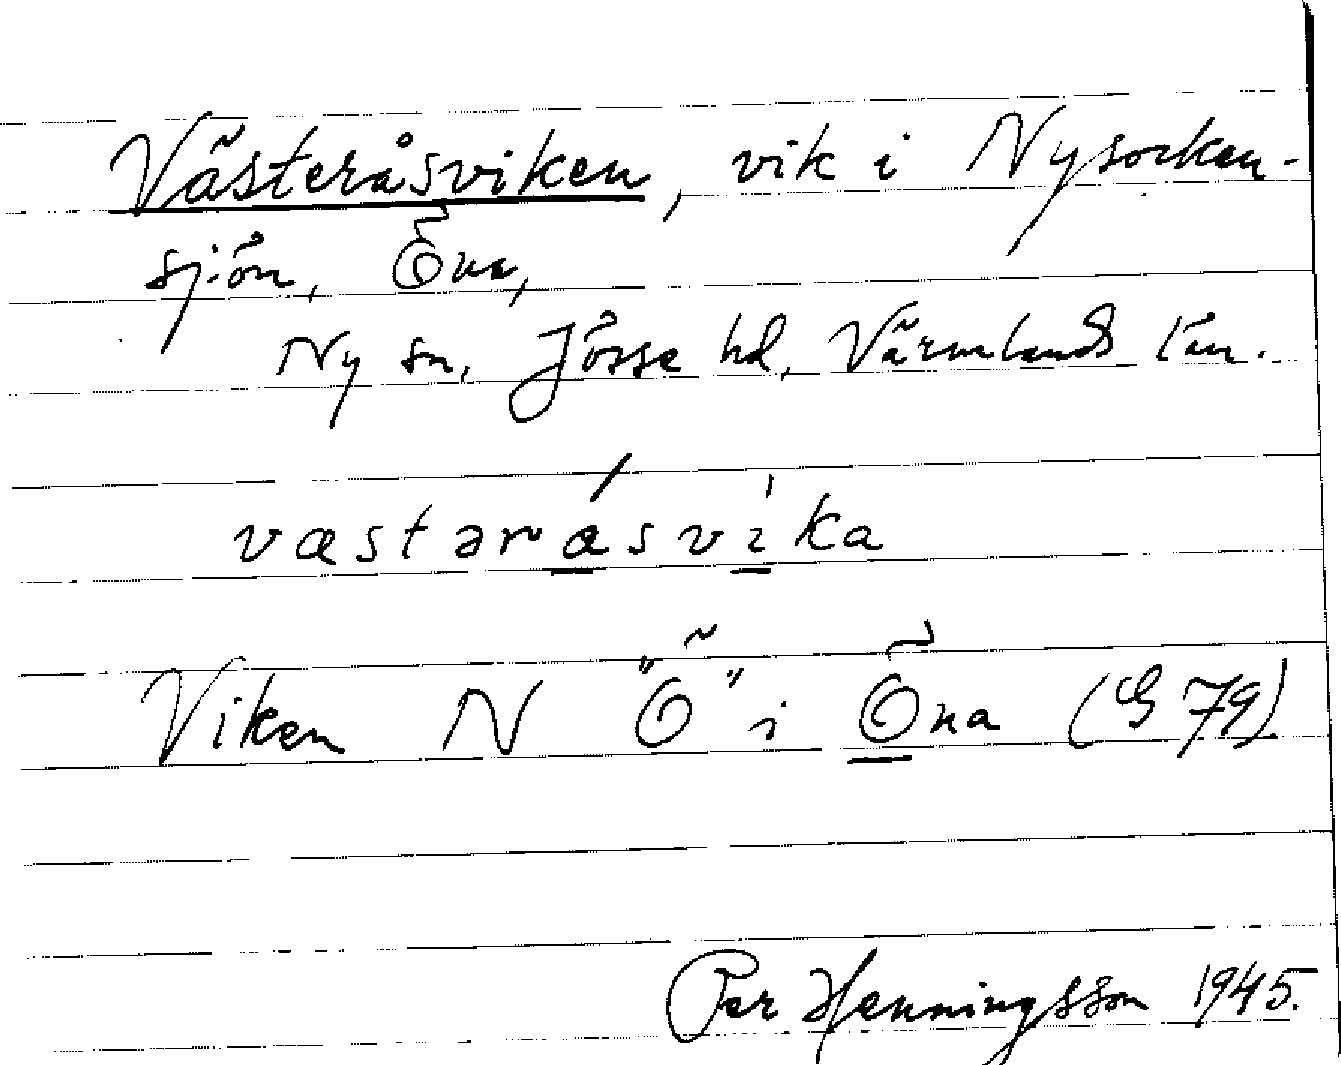 Västeråsviken, vik i Nysocken-
sjön, Öna,
Ny sn, Jösse hd, Värmlands län.
væstəråsvika
Viken N "Ö" i Öna (G 79)
Per Henningsson 1945.